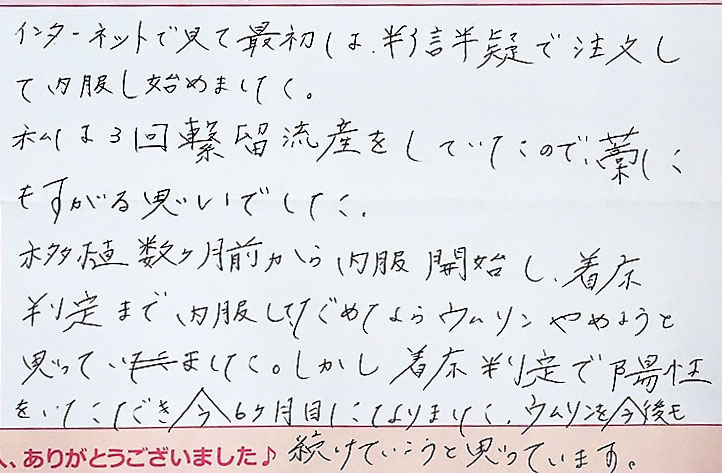 インターネットで見て最初は、半信半疑で注文し
て内服し始めました。
私は3回繋留流産をしていたので、藁に
もすがる思いでした。
移植数ヶ月前から内服開始し、着床
判定まで内服してだめならウムリンやめようと
思っていました。しかし着床判定で陽性
をいただき今6ヶ月目になりました。ウムリンを今後も
続けていこうと思っています。
、ありがとうございました♪